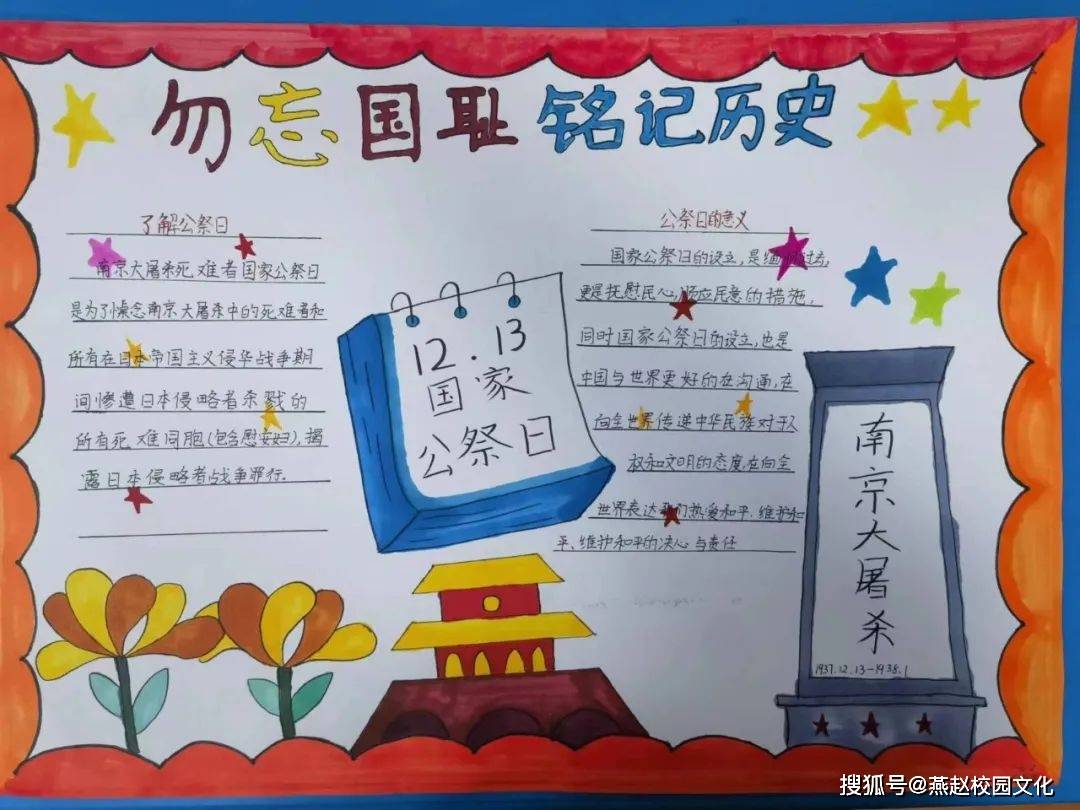 勿忘国耻 铭记历史
了解公祭日
南京大屠杀死难者国家公祭日
是为了悼念南京大屠杀中的死难者和
所有在日本帝国主义侵华战争期
间惨遭日本侵略者杀戮的
所有死难同胞(包含慰安妇),揭
露日本侵略者战争罪行.
12.13
国家
公祭日
公祭日的意义
国家公祭日的设立,是缅怀过去,
更是抚慰民心,顺应民意的措施,
同时国家公祭日的设立,也是
中国与世界更好的在沟通,在
向全世界传递中华民族对于人
权和文明的态度,在向全
世界表达我们热爱和平,维护和
平、维护和平的决心与责任
南京大屠杀
1937.12.13-1938.1
搜狐号@燕赵校园文化